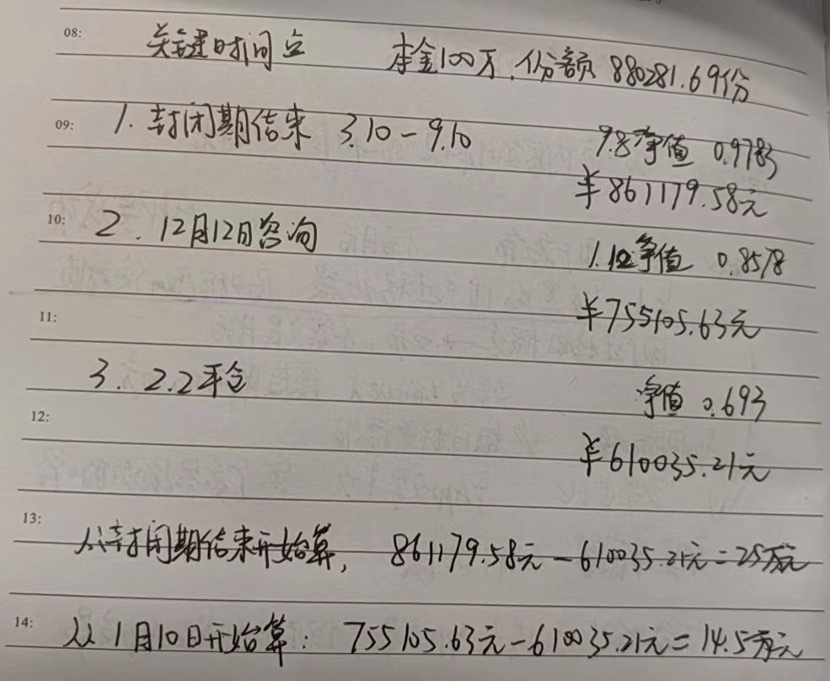 08:
关键时间点 本金100万,份额 880281.69份
09:
1. 封闭期结束 3.10-9.10 9.8净值 0.9783
¥861179.58元
10:
2. 12月12日咨询 1.12净值 0.8578
¥755105.63元
11:
3. 2.2平仓 净值 0.693
12:
¥610035.21元
13:
从封闭期结束开始算, 861179.58元-610035.21元=25万元
14:
从1月10日开始算: 755105.63元-610035.21元=14.5万元